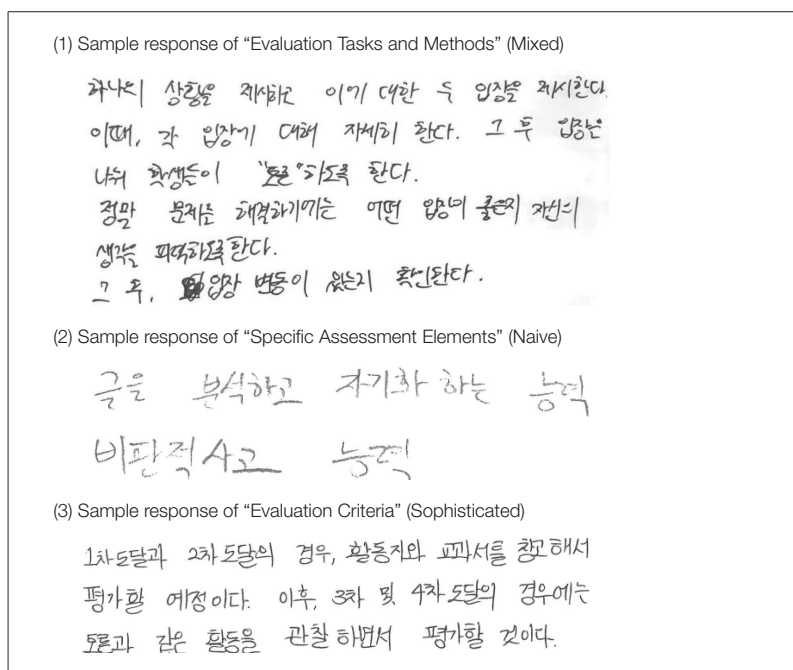 (1) Sample response of “Evaluation Tasks and Methods” (Mixed)
하나의 상황을 제시하고 이에 대한 두 입장을 제시한다.
이때, 각 입장에 대해 자세히 한다. 그 후 입장을
나눠 학생들이 "토론"하도록 한다.
정말 문제를 해결하기에는 어떤 입장이 좋은지 자신의
생각을 피력하도록 한다.
그 후, 입장 변동이 있는지 확인한다.
(2) Sample response of “Specific Assessment Elements” (Naive)
글을 분석하고 자기화 하는 능력
비판적 사고 능력
(3) Sample response of “Evaluation Criteria” (Sophisticated)
1차 도달과 2차 도달의 경우, 활동지와 교과서를 참고해서
평가할 예정이다. 이후, 3차 및 4차 도달의 경우에는
토론과 같은 활동을 관찰하면서 평가할 것이다.